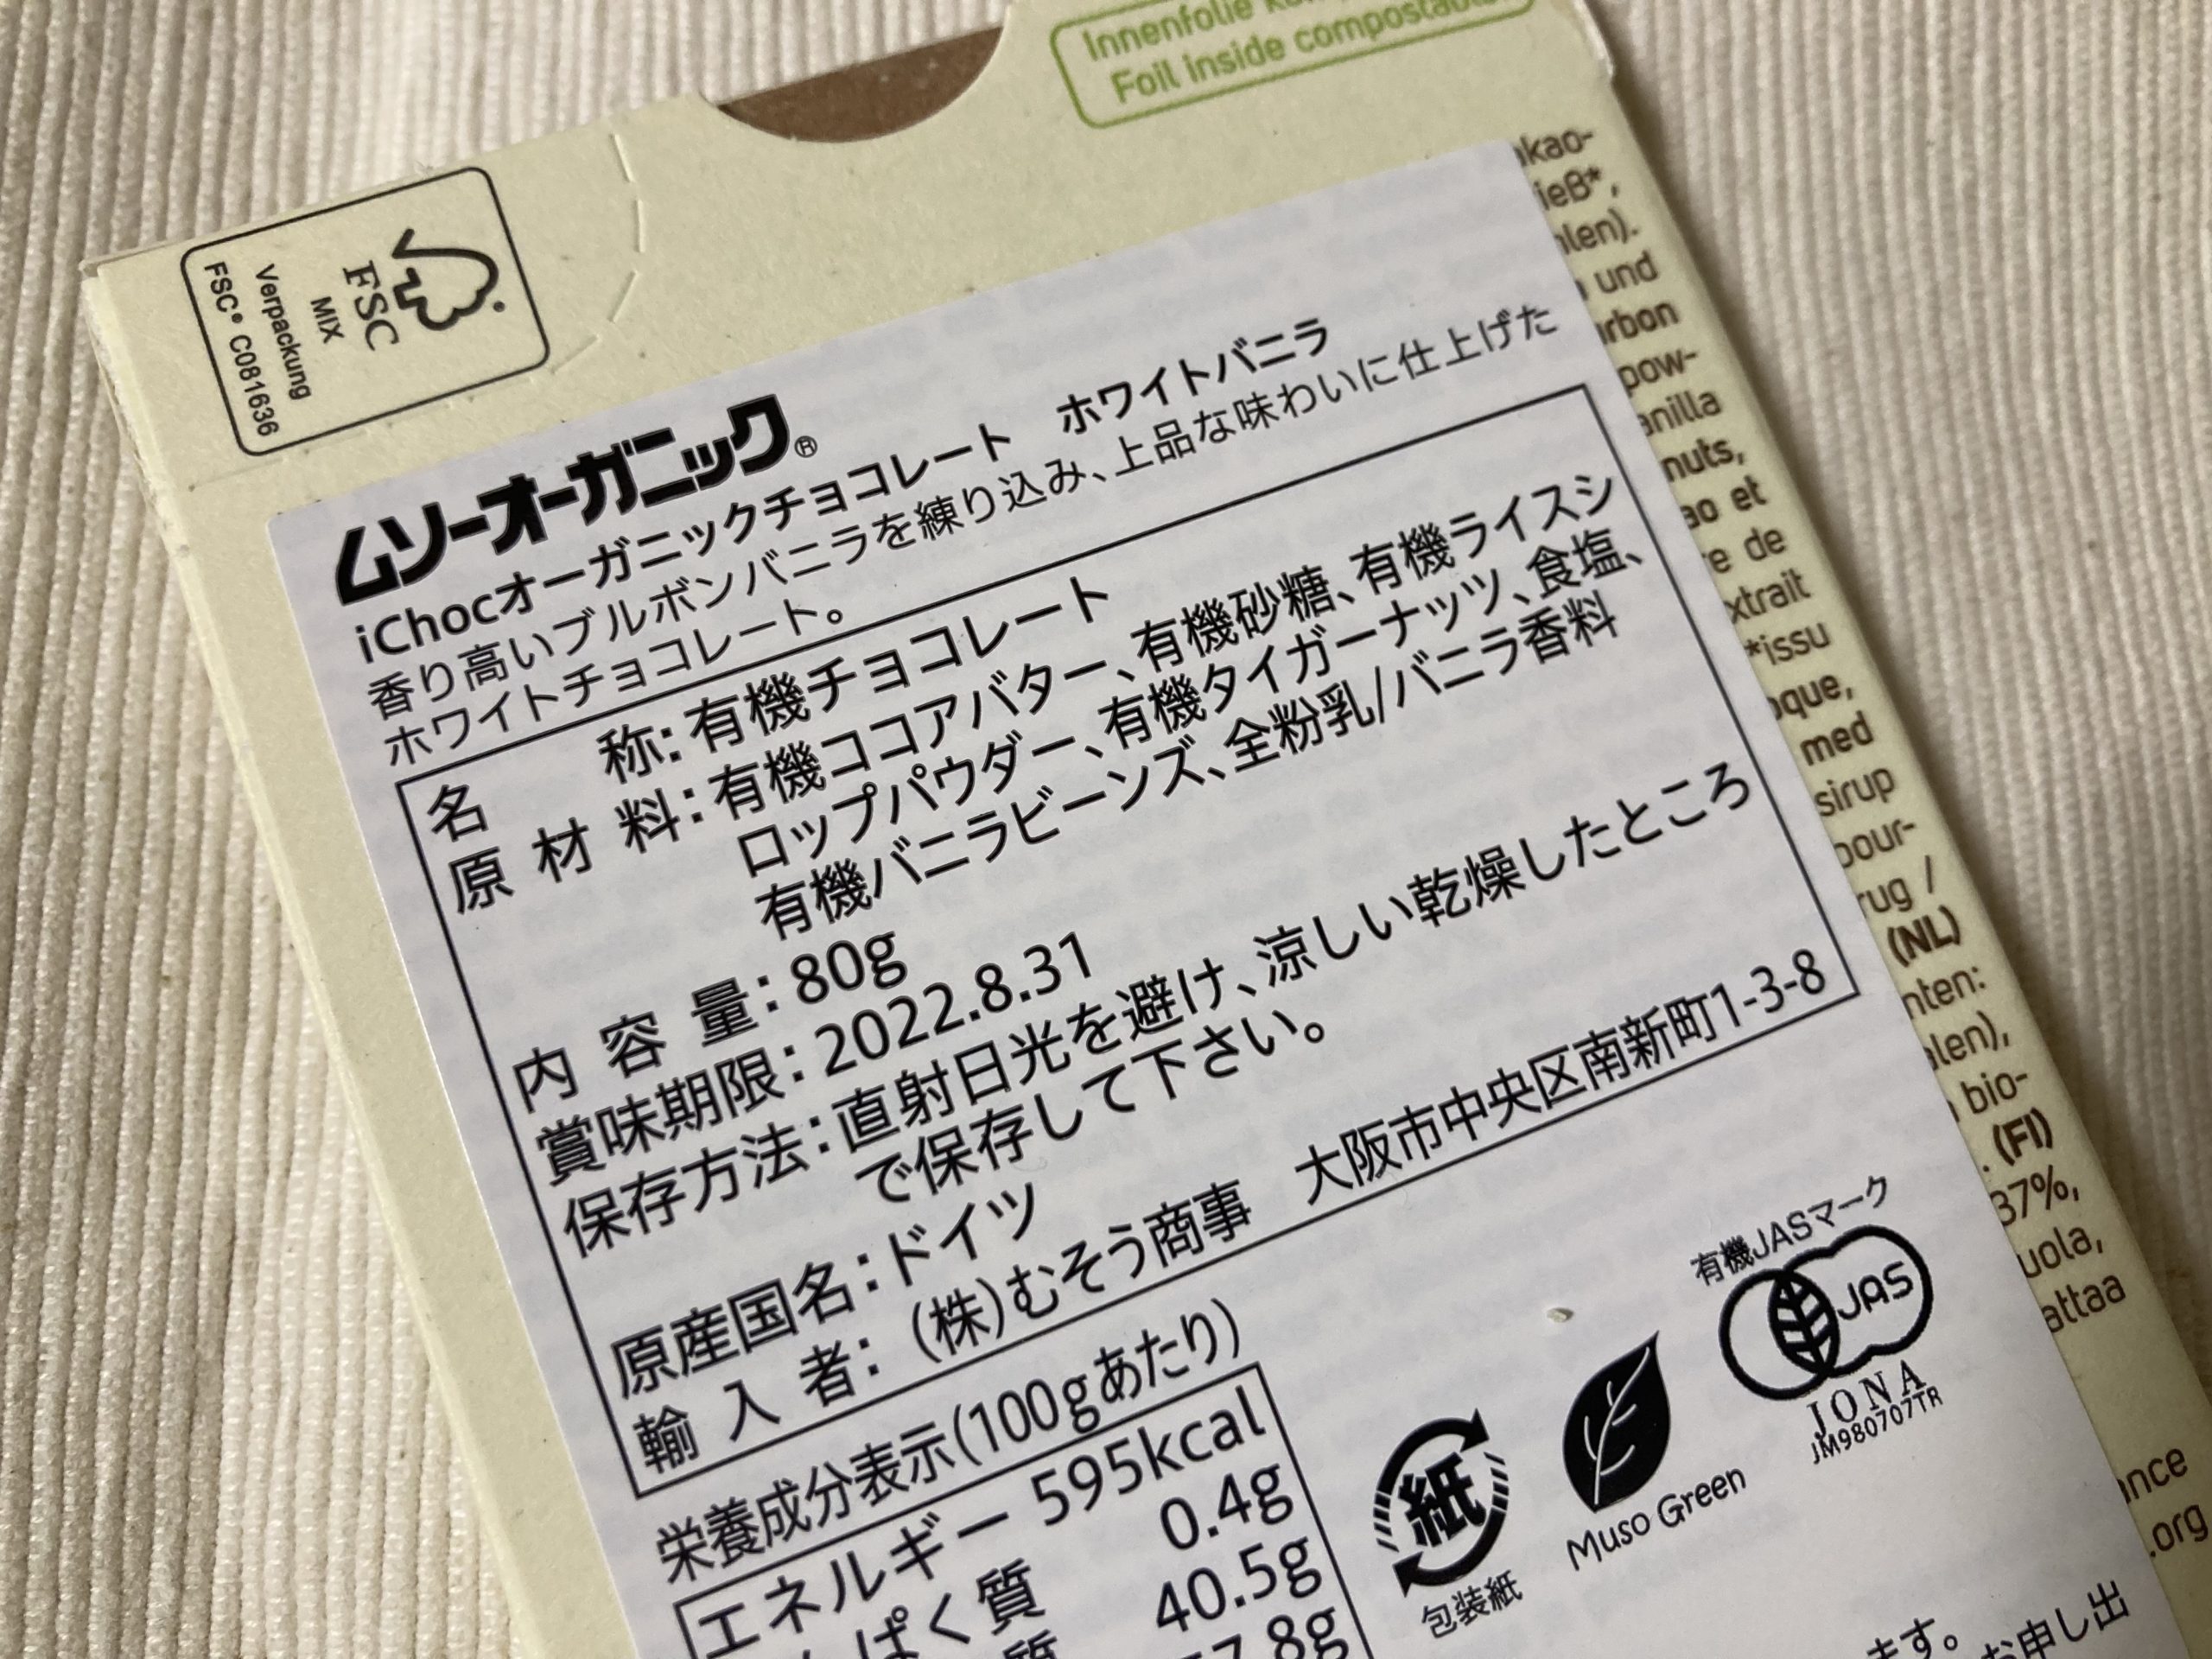 Innenfolie
Foil inside compostable
FSC
MIX
Verpackung
FSC® C081636
ムソーオーガニック®
iChocオーガニックチョコレート　ホワイトバニラ
香り高いブルボンバニラを練り込み、上品な味わいに仕上げた
ホワイトチョコレート。
名称:有機チョコレート
原材料:有機ココアバター、有機砂糖、有機ライスシ
ロップパウダー、有機タイガーナッツ、食塩、
有機バニラビーンズ、全粉乳/バニラ香料
内容量:80g
賞味期限:2022.8.31
保存方法:直射日光を避け、涼しい乾燥したところ
で保存して下さい。
原産国名:ドイツ
輸入者:(株)むそう商事　大阪市中央区南新町1-3-8
栄養成分表示(100gあたり)
エネルギー 595kcal
ぱく質 0.4g
質 40.5g
7.8g
紙
包装紙
Muso Green
有機JASマーク
JAS
JONA
JM980707TR
ます。
お申し出
kao-
ieß*,
hlen).
und
rbon
pow-
anilla
nuts,
ao et
re de
xtrait
*issu
oque,
med
sirup
pour-
rug /
(NL)
nten:
alen),
bio-
. (FI)
37%,
uola,
attaa
ance
.org